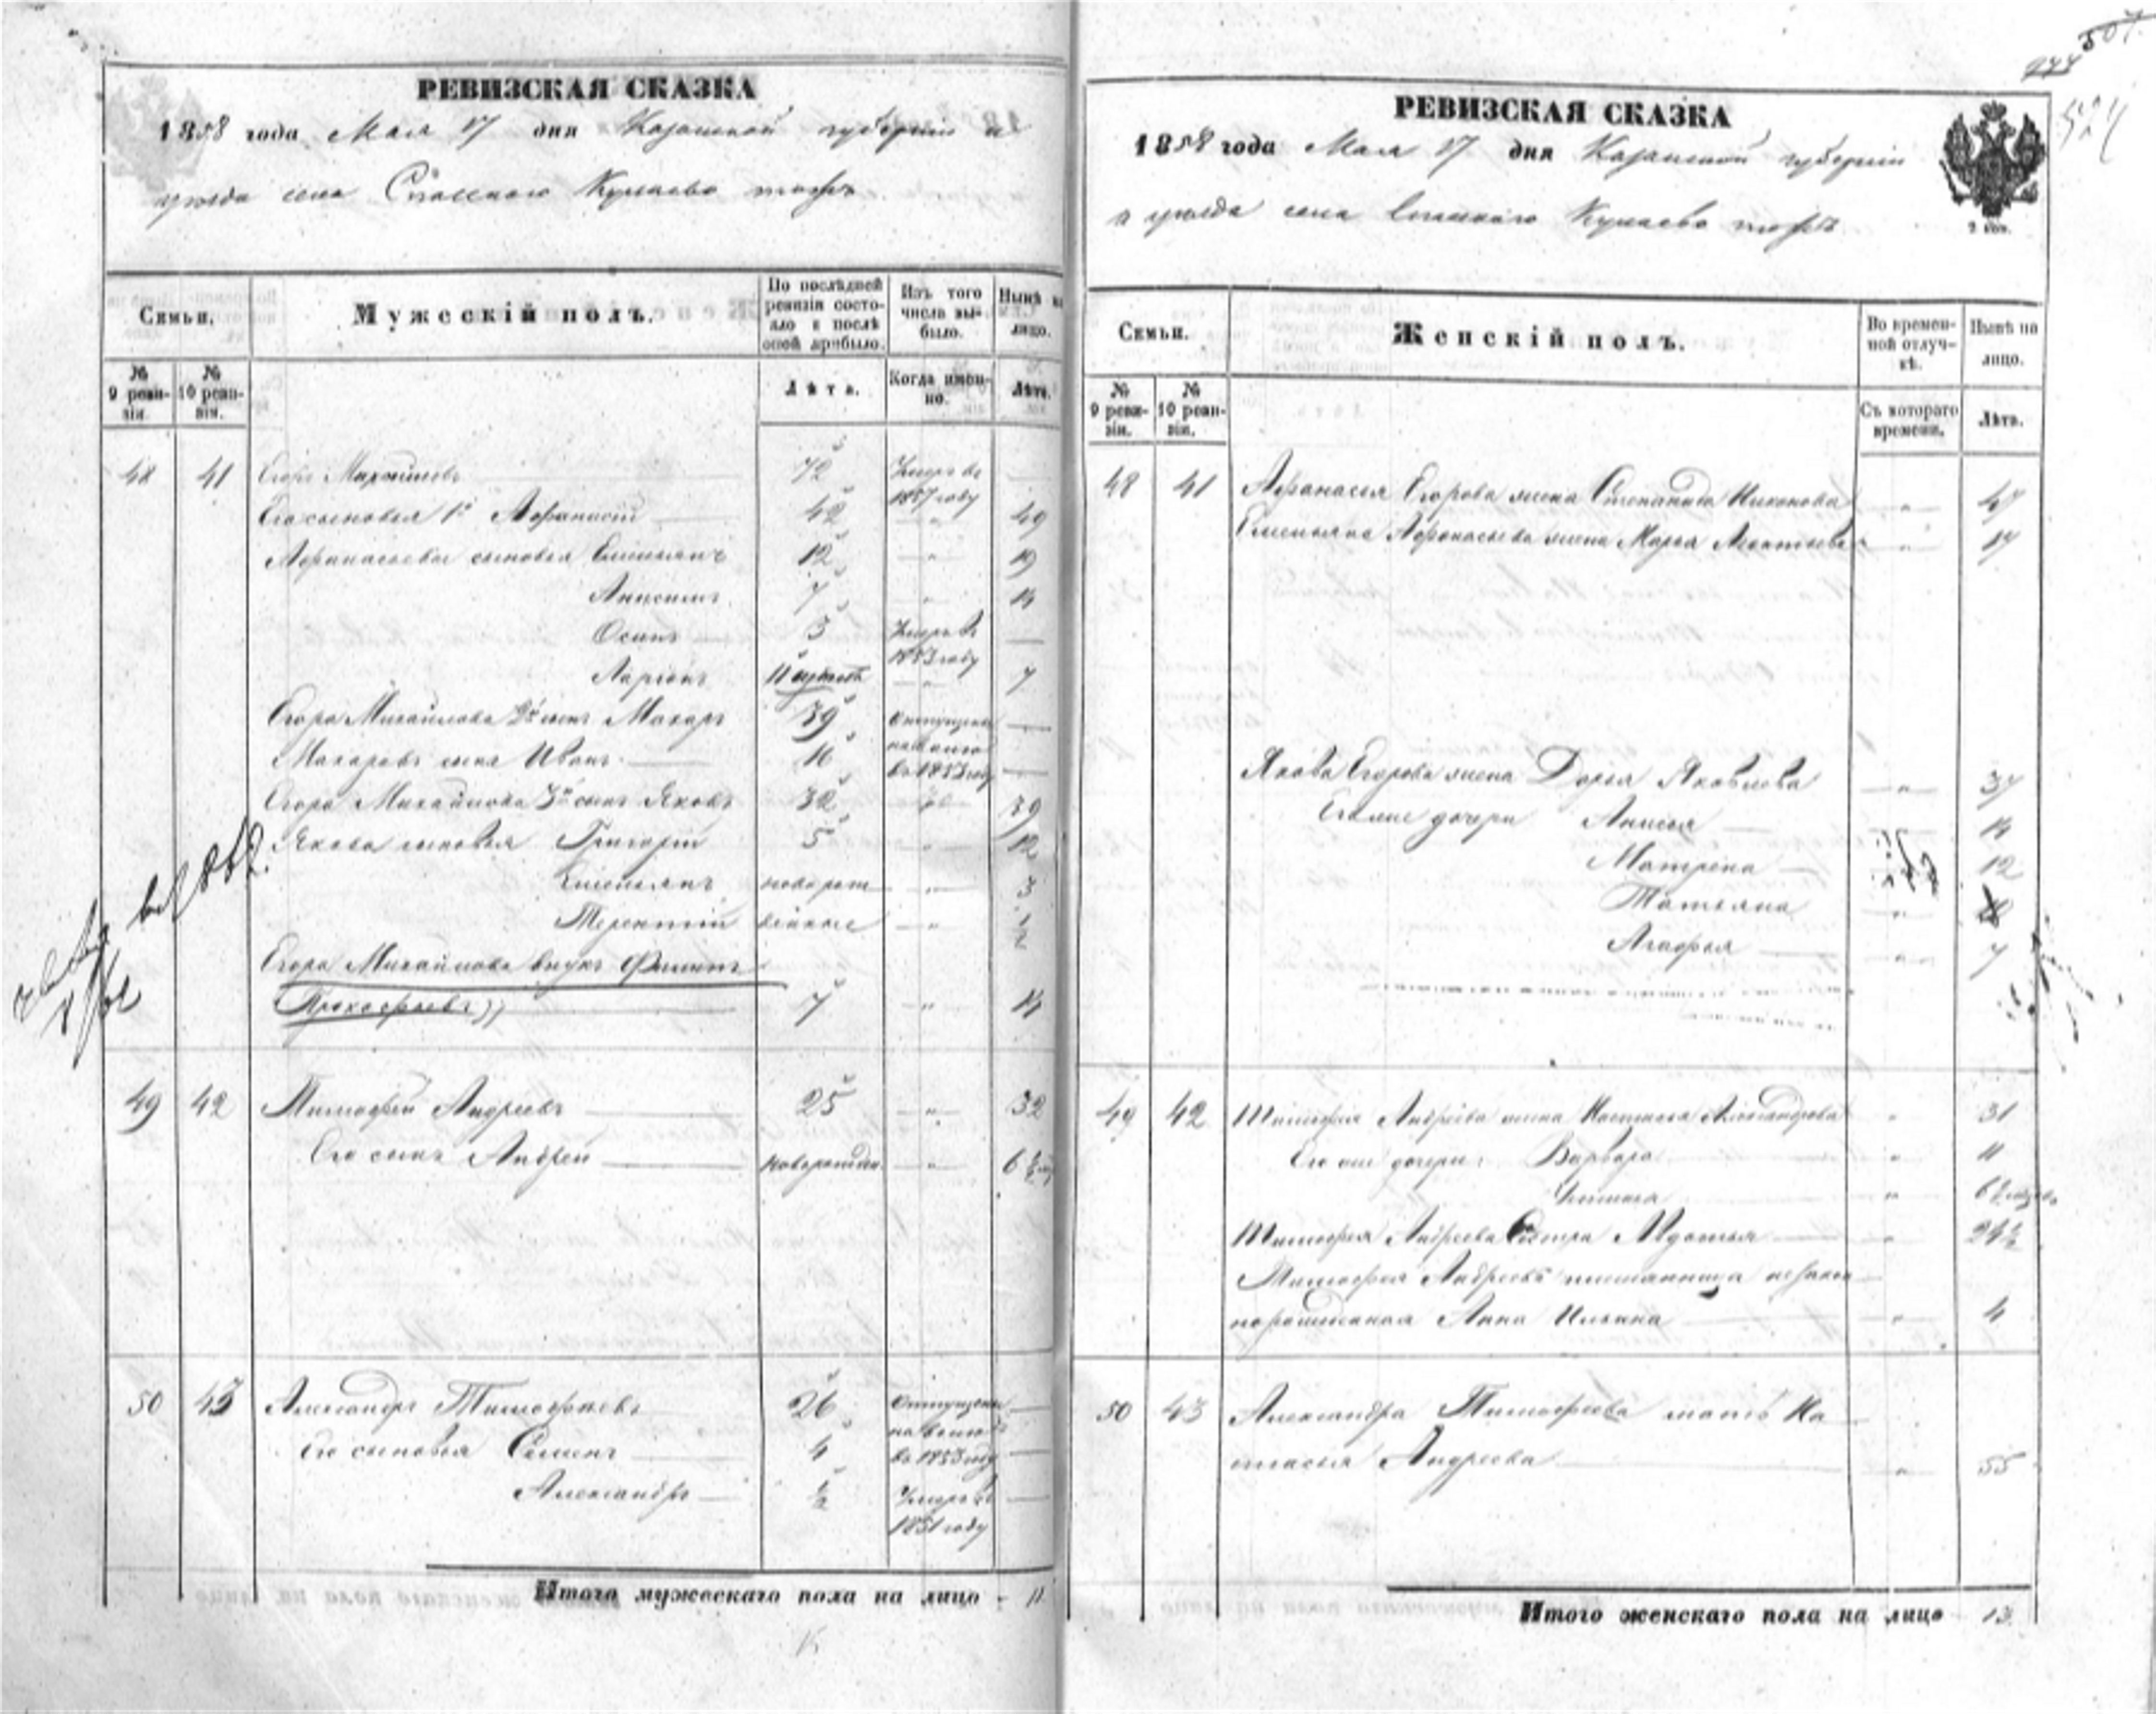 РЕВИЗСКАЯ СКАЗКА
1858 года Мая 17 дня Казанской губернии и
уезда села Спасского Кулаево тожъ
Семьи.
Мужескій полъ.
По послѣдней ревизіи состояло и послѣ оной прибыло.
Изъ того числа выбыло.
Нынѣ на лицо.
№ 9 ревизіи.
№ 10 ревизіи.
Лѣта.
Когда именно.
Лѣта.
48 41 Егоръ Михайловъ 72 Умеръ въ 1857 году
Его сыновья 1й Афанасій 42 " 49
Афанасьевы сыновья Емельянъ 12 " 19
Анисимъ 7 " 14
Осипъ 3 Умеръ въ 1853 году
Ларіонъ 7
Егора Михайлова 2й сынъ Макаръ 39 Отпущены на волю въ 1853 году
Макаровъ сынъ Иванъ
Егора Михайлова 3й сынъ Яковъ 32 39
Якова сыновья Григорій 5 " 12
Емельянъ новорож- " 3
Терентій денные "
Егора Михайлова внукъ Филипъ
Прокофьевъ 7 " 14
49 42 Тимофей Андреевъ 25 " 32
Его сынъ Андрей новорожден. "
50 43 Александръ Тимофеевъ 26 Отпущены на волю въ 1853 году
Его сыновья Семенъ 4
Александръ ½ Умеръ въ 1851 году
Итого мужескаго пола на лицо - 11
РЕВИЗСКАЯ СКАЗКА
1858 года Мая 17 дня Казанской губерніи
и уезда села Спасского Кулаево тожъ
Семьи.
Женскій полъ.
Во временной отлучкѣ.
Нынѣ на лицо.
№ 9 ревизіи.
№ 10 ревизіи.
Съ котораго времени.
Лѣта.
48 41 Афанасья Егорова жена Степанида Никонова " 47
Емельяна Афанасьева жена Марья " 17
Якова Егорова жена Дарья Яковлева " 37
Его же дочери Анисья 14
Матрена 12
Татьяна "
Агафья " 7
49 42 Тимофея Андреева жена Настасья Александрова " 31
Его же дочери: Варвара " 11
"
Тимофея Андреева сестра Авдотья " 24½
Тимофея Андреева племянница незакон-
норожденная Анна Ильина " 4
50 43 Александра Тимофеева мать На-
стасья Андреева " 55
Итого женскаго пола на лицо 13